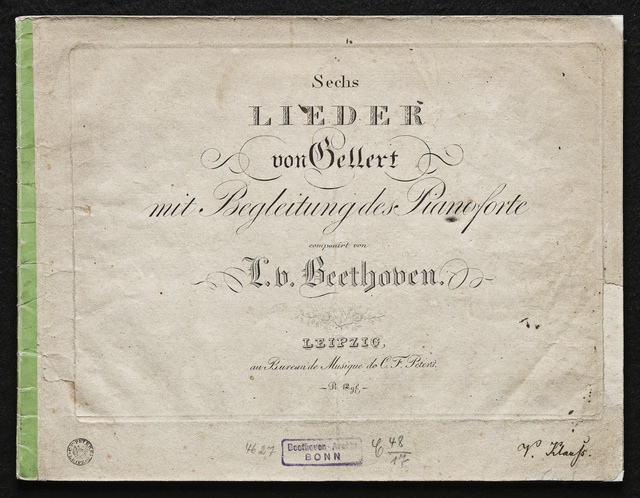 Sechs
LIEDER
von Gellert
mit Begleitung des Pianoforte
componirt von
L. v. Beethoven.
LEIPZIG,
au Bureau de Musique de C. F. Peters.
4627
Beethoven-Archiv
BONN
C 48
17
V. Klauss.